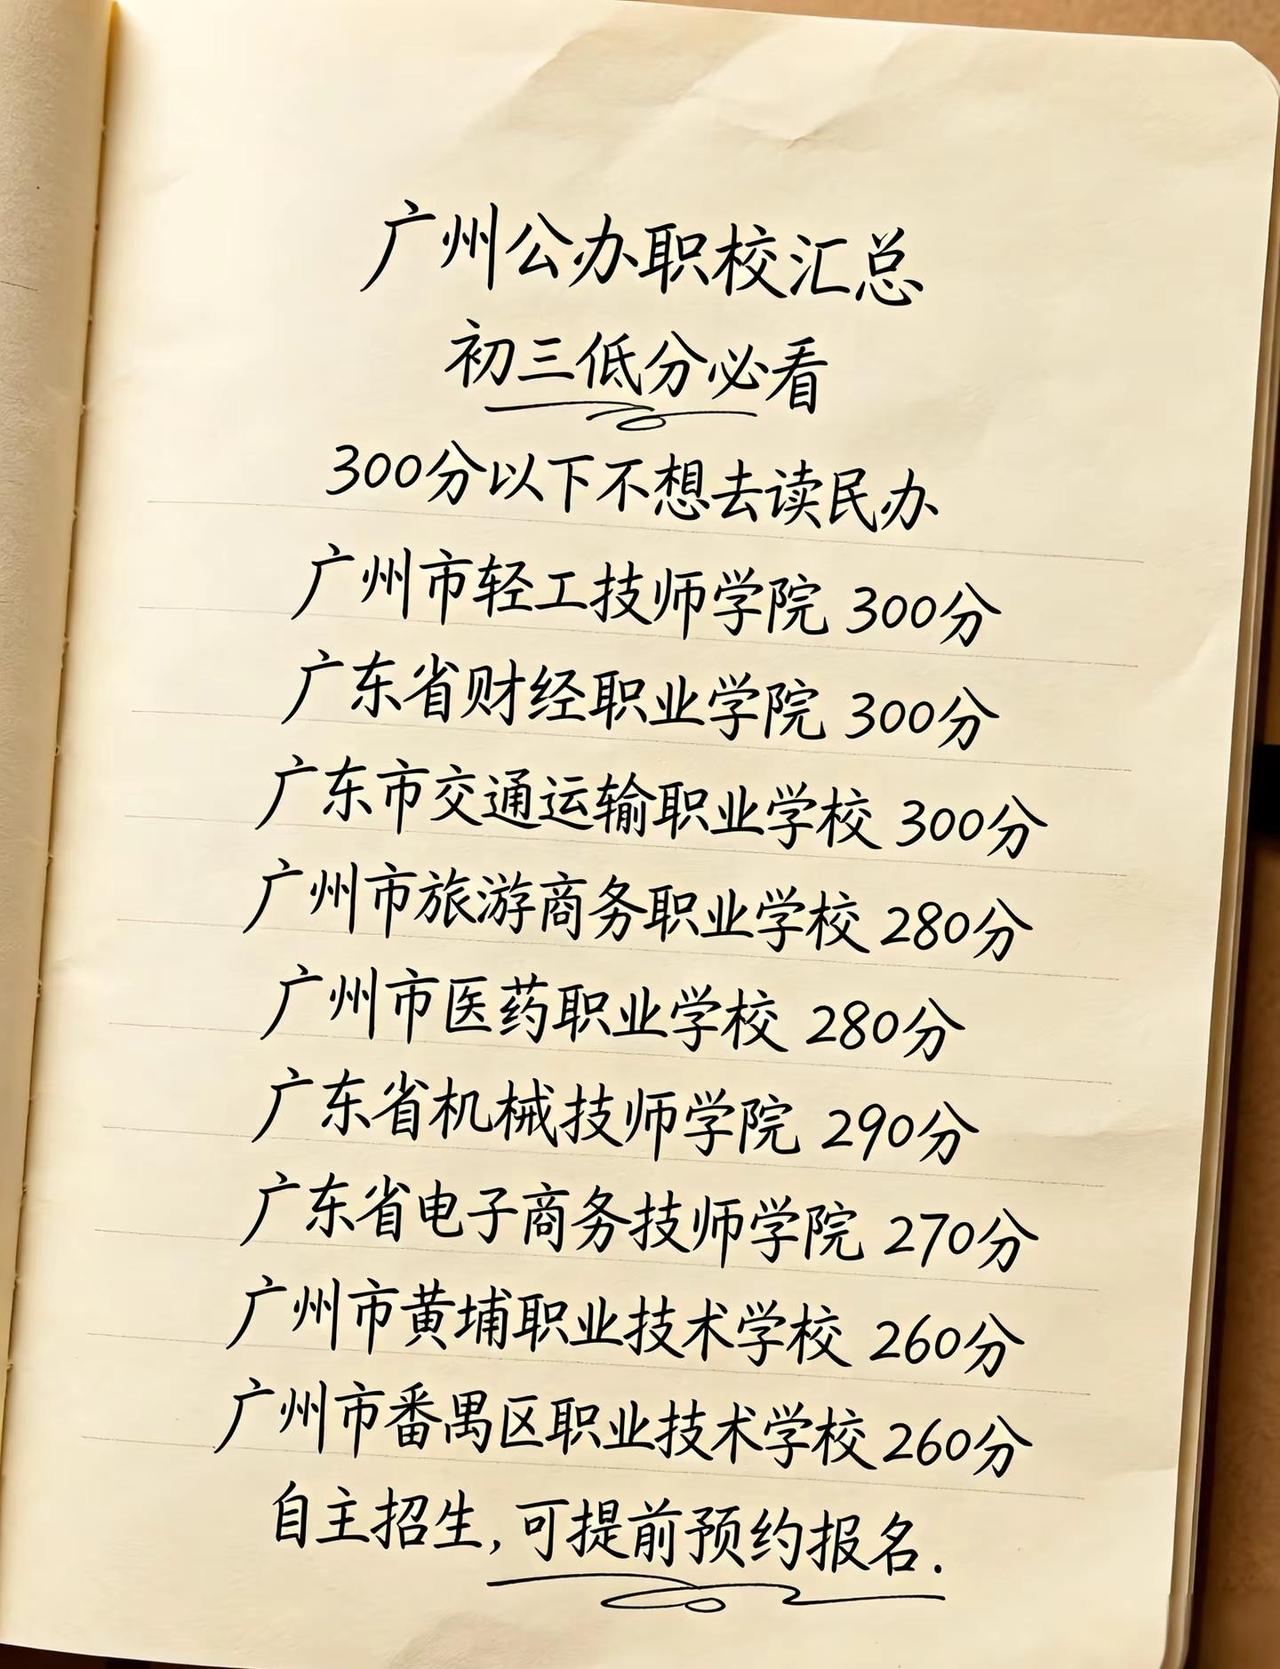 广州公办职校汇总
初三低分必看
300分以下不想去读民办
广州市轻工技师学院 300分
广东省财经职业学院 300分
广东市交通运输职业学校 300分
广州市旅游商务职业学校 280分
广州市医药职业学校 280分
广东省机械技师学院 290分
广东省电子商务技师学院 270分
广州市黄埔职业技术学校 260分
广州市番禺区职业技术学校 260分
自主招生,可提前预约报名.